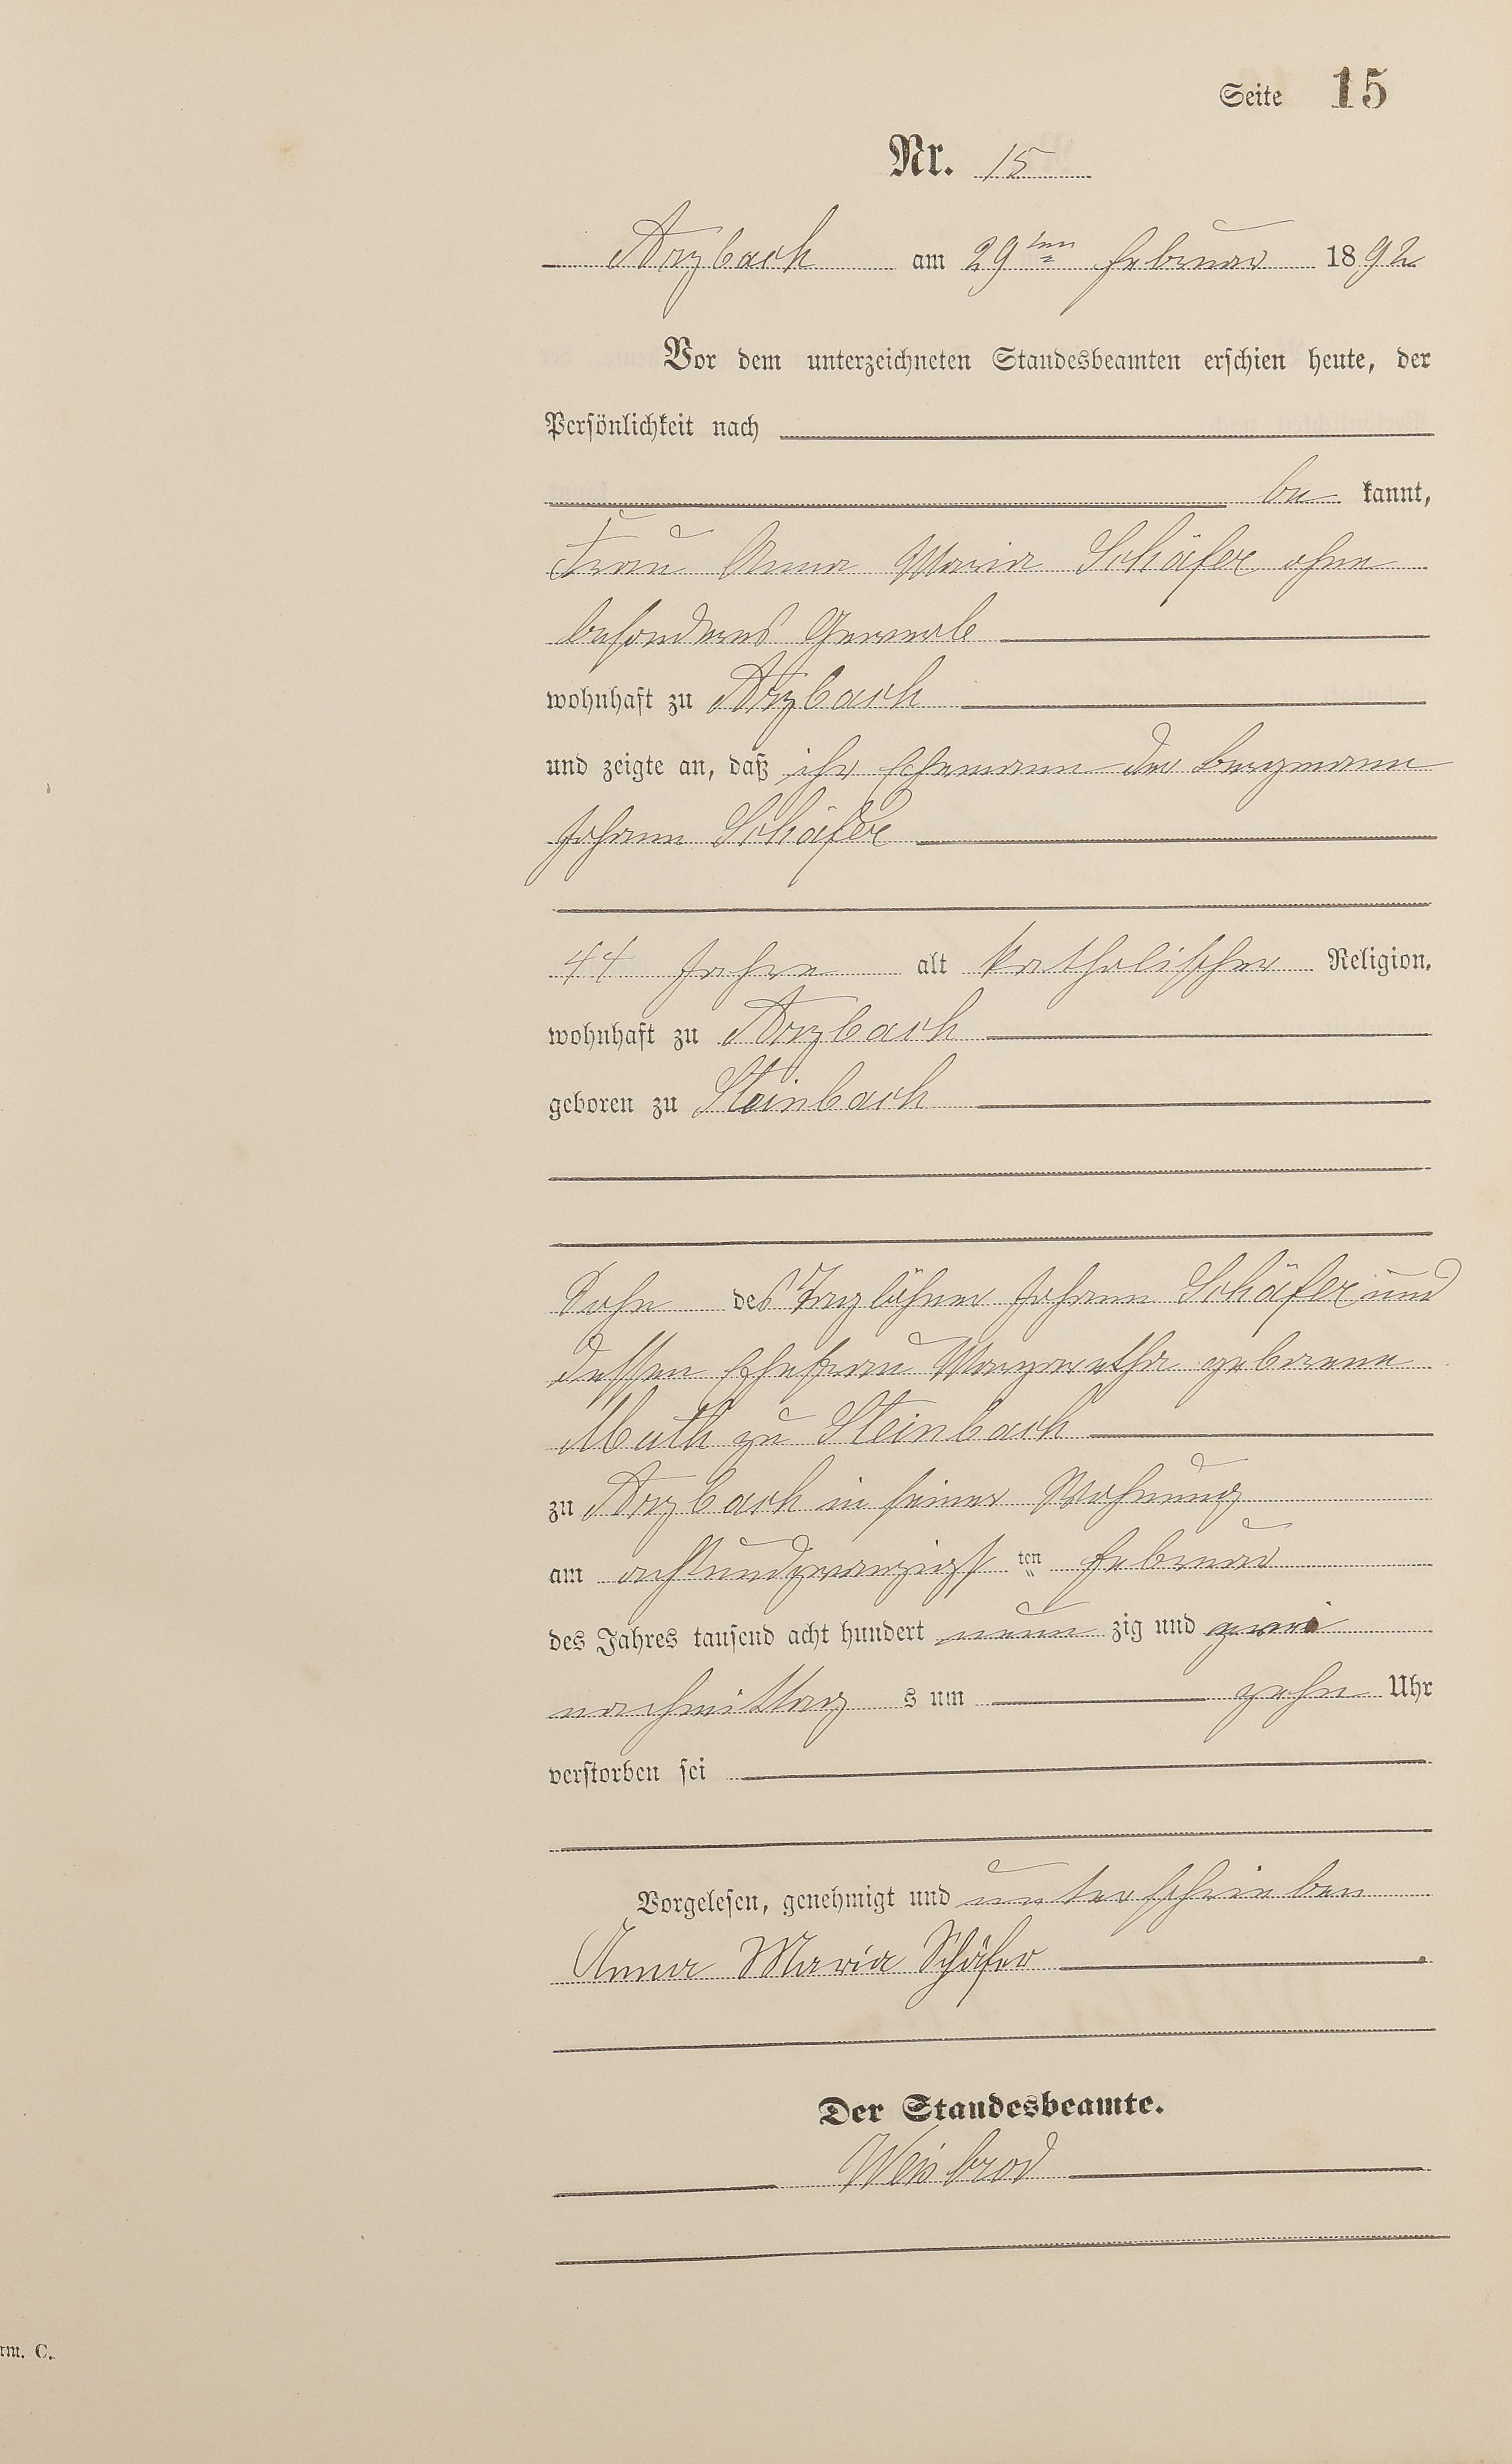 Seite 15
Nr. 15
Arzbach am 29ten Februar 1892
Vor dem unterzeichneten Standesbeamten erschien heute, der
Persönlichkeit nach
be kannt,
Frau Anna Maria Schäfer ohne
besonderes Gewerbe
wohnhaft zu Arzbach
und zeigte an, daß ihr Ehemann der Bergmann
Johann Schäfer
44 Jahre alt katholischer Religion,
wohnhaft zu Arzbach
geboren zu Steinbach
Sohn des Taglöhner Johann Schäfer und
dessen Ehefrau Margaretha geborene
Muth zu Steinbach
zu Arzbach in seiner Wohnung
am achtundzwanzigst ten Februar
des Jahres tausend acht hundert neun zig und zwei
nachmittag s um zehn Uhr
verstorben sei
Vorgelesen, genehmigt und unterschrieben
Anna Maria Schäfer
Der Standesbeamte.
Weisbrod
rm. C.